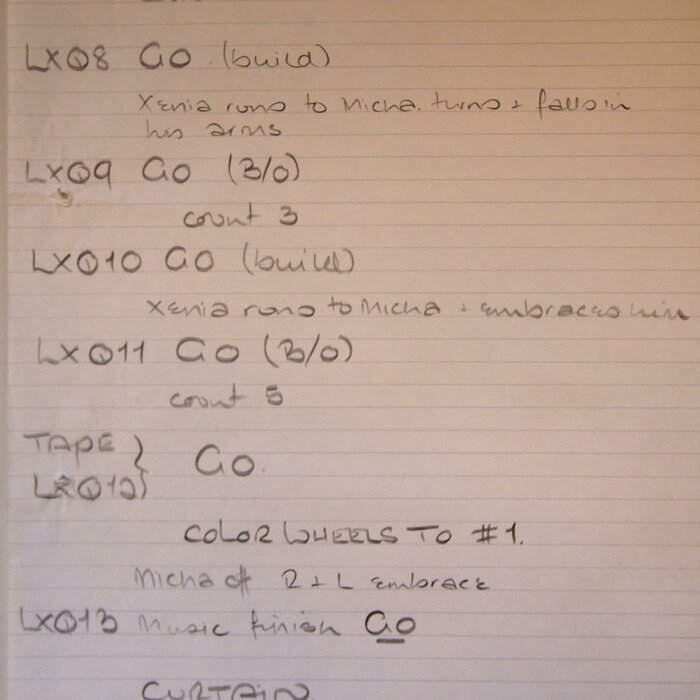 LXQ8 GO (build)
Xenia runs to Micha. turns + falls in
his arms
LXQ9 GO (B/O)
count 3
LXQ10 GO (build)
Xenia runs to Micha + embraces him
LXQ11 GO (B/O)
count 5
TAPE } GO.
LXQ12)
COLOR WHEELS TO #1.
Micha off R + L embrace
LXQ13 Music finish GO
CURTAIN